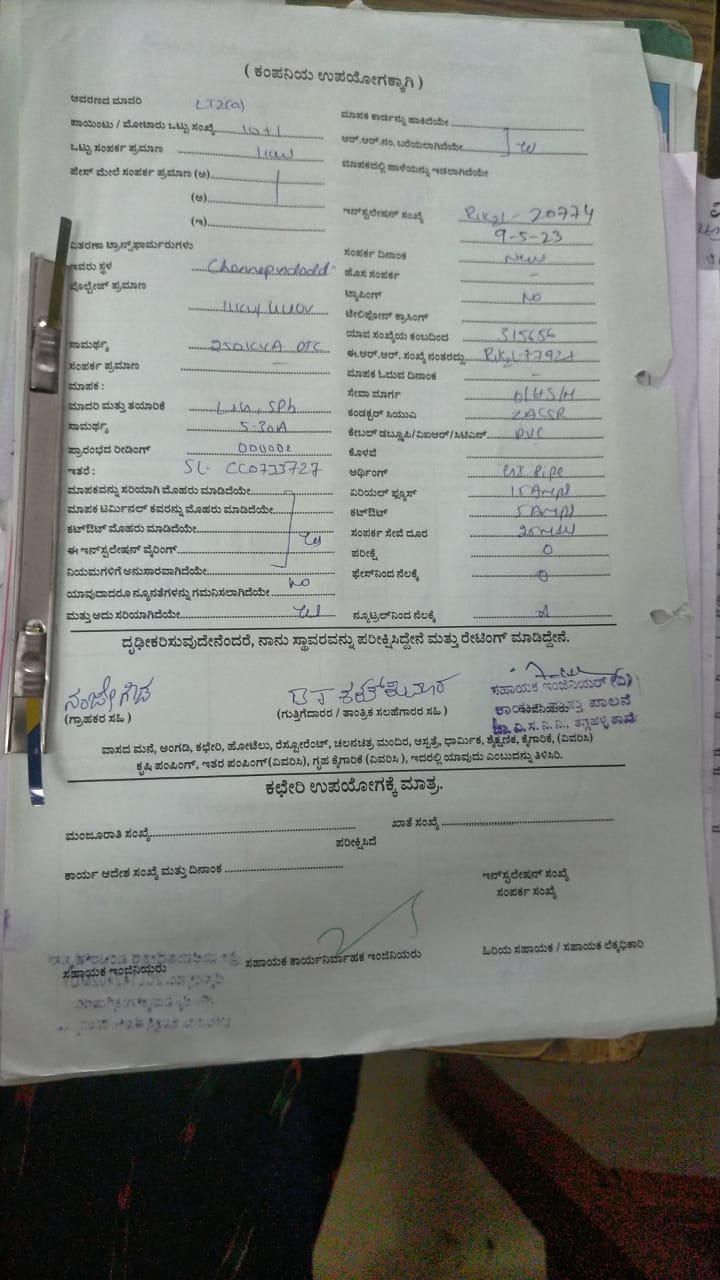 ( ಕಂಪನಿಯ ಉಪಯೋಗಕ್ಕಾಗಿ )
ಆವರಣದ ಮಾದರಿ LT2(a)
ಪಾಯಿಂಟು / ಮೋಟಾರು ಒಟ್ಟು ಸಂಖ್ಯೆ 10+1
ಒಟ್ಟು ಸಂಪರ್ಕ ಪ್ರಮಾಣ
ಫೇಸ್ ಮೇಲೆ ಸಂಪರ್ಕ ಪ್ರಮಾಣ (ಅ)
(ಆ)
(ಇ)
ವಿತರಣಾ ಟ್ರಾನ್ಸ್‌ಫಾರ್ಮರುಗಳು
ಇವರು ಸ್ಥಳ
ವೊಲ್ಟೇಜ್ ಪ್ರಮಾಣ
ಸಾಮರ್ಥ್ಯ
ಸಂಪರ್ಕ ಪ್ರಮಾಣ
ಮಾಪಕ :
ಮಾದರಿ ಮತ್ತು ತಯಾರಿಕೆ
ಸಾಮರ್ಥ್ಯ 5-30A
ಪ್ರಾರಂಭದ ರೀಡಿಂಗ್ 000002
ಇತರೆ : SL- CC0733727
ಮಾಪಕವನ್ನು ಸರಿಯಾಗಿ ಮೊಹರು ಮಾಡಿದೆಯೇ
ಮಾಪಕ ಟರ್ಮಿನಲ್ ಕವರನ್ನು ಮೊಹರು ಮಾಡಿದೆಯೇ
ಕಟ್‌ಔಟ್ ಮೊಹರು ಮಾಡಿದೆಯೇ
ಈ ಇನ್‌ಸ್ಟಲೇಷನ್ ವೈರಿಂಗ್
ನಿಯಮಗಳಿಗೆ ಅನುಸಾರವಾಗಿದೆಯೇ
ಯಾವುದಾದರೂ ನ್ಯೂನತೆಗಳನ್ನು ಗಮನಿಸಲಾಗಿದೆಯೇ No
ಮತ್ತು ಅದು ಸರಿಯಾಗಿದೆಯೇ
ಮಾಪಕ ಕಾರ್ಡನ್ನು ಹಾಕಿದೆಯೇ
ಆರ್.ಆರ್.ನಂ. ಬರೆಯಲಾಗಿದೆಯೇ
ಮಾಪಕದಲ್ಲಿ ಹಾಳೆಯನ್ನು ಇಡಲಾಗಿದೆಯೇ
ಇನ್‌ಸ್ಟಲೇಷನ್ ಸಂಖ್ಯೆ 20774
9-5-23
ಸಂಪರ್ಕ ದಿನಾಂಕ New
ಹೊಸ ಸಂಪರ್ಕ -
ಟ್ಯಾಪಿಂಗ್ NO
ಟೆಲಿಫೋನ್ ಕ್ರಾಸಿಂಗ್
ಯಾವ ಸಂಖ್ಯೆಯ ಕಂಬದಿಂದ 315656
ಈ.ಆರ್.ಆರ್. ಸಂಖ್ಯೆ ನಂತರದ್ದು
ಮಾಪಕ ಓದುವ ದಿನಾಂಕ -
ಸೇವಾ ಮಾರ್ಗ
ಕಂಡಕ್ಟರ್ ಸಿಯುಎ
ಕೇಬಲ್ ಡಬ್ಲ್ಯೂಪಿ/ವಿಐಆರ್/ಸಿಟಿಎಸ್ PVC
ಕೊಳವೆ
ಅರ್ಥಿಂಗ್ GI Pipe
ಏರಿಯಲ್ ಫ್ಯೂಸ್ 15 Amps
ಕಟ್‌ಔಟ್ 5 Amps
ಸಂಪರ್ಕ ಸೇವೆ ದೂರ
ಪರೀಕ್ಷೆ 0
ಫೇಸ್‌ನಿಂದ ನೆಲಕ್ಕೆ 0
ನ್ಯೂಟ್ರಲ್‌ನಿಂದ ನೆಲಕ್ಕೆ
ದೃಢೀಕರಿಸುವುದೇನೆಂದರೆ, ನಾನು ಸ್ಥಾವರವನ್ನು ಪರೀಕ್ಷಿಸಿದ್ದೇನೆ ಮತ್ತು ರೇಟಿಂಗ್ ಮಾಡಿದ್ದೇನೆ.
ನಂಜೇಗೌಡ
(ಗ್ರಾಹಕರ ಸಹಿ )
(ಗುತ್ತಿಗೆದಾರರ / ತಾಂತ್ರಿಕ ಸಲಹೆಗಾರರ ಸಹಿ )
ಸಹಾಯಕ ಇಂಜಿನಿಯರ್ (ವಿ)
ಪಾಲನೆ
ವಾಸದ ಮನೆ, ಅಂಗಡಿ, ಕಛೇರಿ, ಹೋಟೆಲು, ರೆಸ್ಟೋರೆಂಟ್, ಚಲನಚಿತ್ರ ಮಂದಿರ, ಆಸ್ಪತ್ರೆ, ಧಾರ್ಮಿಕ, ಶೈಕ್ಷಣಿಕ, ಕೈಗಾರಿಕೆ, (ವಿವರಿಸಿ)
ಕೃಷಿ ಪಂಪಿಂಗ್, ಇತರ ಪಂಪಿಂಗ್(ವಿವರಿಸಿ), ಗೃಹ ಕೈಗಾರಿಕೆ (ವಿವರಿಸಿ ), ಇದರಲ್ಲಿ ಯಾವುದು ಎಂಬುದನ್ನು ತಿಳಿಸಿರಿ.
ಕಛೇರಿ ಉಪಯೋಗಕ್ಕೆ ಮಾತ್ರ.
ಮಂಜೂರಾತಿ ಸಂಖ್ಯೆ
ಖಾತೆ ಸಂಖ್ಯೆ
ಪರೀಕ್ಷಿಸಿದೆ
ಕಾರ್ಯ ಆದೇಶ ಸಂಖ್ಯೆ ಮತ್ತು ದಿನಾಂಕ
ಇನ್‌ಸ್ಟಲೇಷನ್ ಸಂಖ್ಯೆ
ಸಂಪರ್ಕ ಸಂಖ್ಯೆ
ಸಹಾಯಕ ಇಂಜಿನಿಯರು
ಸಹಾಯಕ ಕಾರ್ಯನಿರ್ವಾಹಕ ಇಂಜಿನಿಯರು
ಹಿರಿಯ ಸಹಾಯಕ / ಸಹಾಯಕ ಲೆಕ್ಕಧಿಕಾರಿ